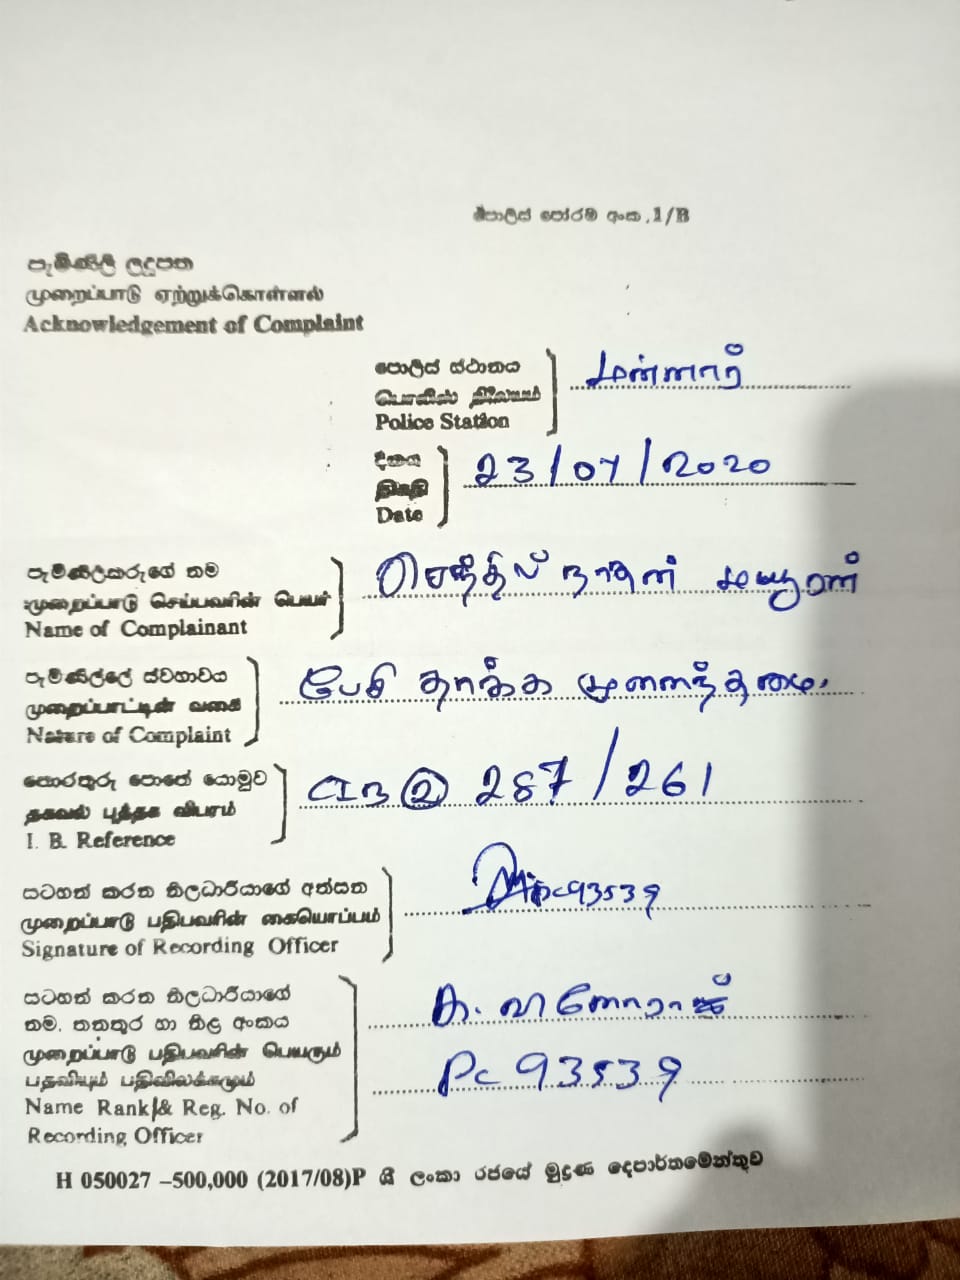 පොලිස් පෝරම අංක .1/B
පැමිණිලි ලදුපත
முறைப்பாடு ஏற்றுக்கொள்ளல்
Acknowledgement of Complaint
පොලිස් ස්ථානය
பொலிஸ் நிலையம்
Police Station
மன்னார்
දිනය
திகதி
Date
23/07/2020
පැමිණිලිකරුගේ නම
முறைப்பாடு செய்பவரின் பெயர்
Name of Complainant
செந்தில் நாதன் மயூரன்
පැමිණිල්ලේ ස්වභාවය
முறைப்பாட்டின் வகை
Nature of Complaint
பேசி தாக்க முனைந்தமை.
තොරතුරු පොතේ යොමුව
தகவல் புத்தக விபரம்
I. B. Reference
CIB (2) 287/261
සටහන් කරන නිලධාරියාගේ අත්සන
முறைப்பாடு பதிபவரின் கையொப்பம்
Signature of Recording Officer
Pc93539
සටහන් කරන නිලධාරියාගේ
නම, තනතුර හා නිල අංකය
முறைப்பாடு பதிபவரின் பெயரும்
பதவியும் பதிவிலக்கமும்
Name Rank & Reg. No. of
Recording Officer
Pc 93539
H 050027 –500,000 (2017/08)P ශ්‍රී ලංකා රජයේ මුද්‍රණ දෙපාර්තමේන්තුව